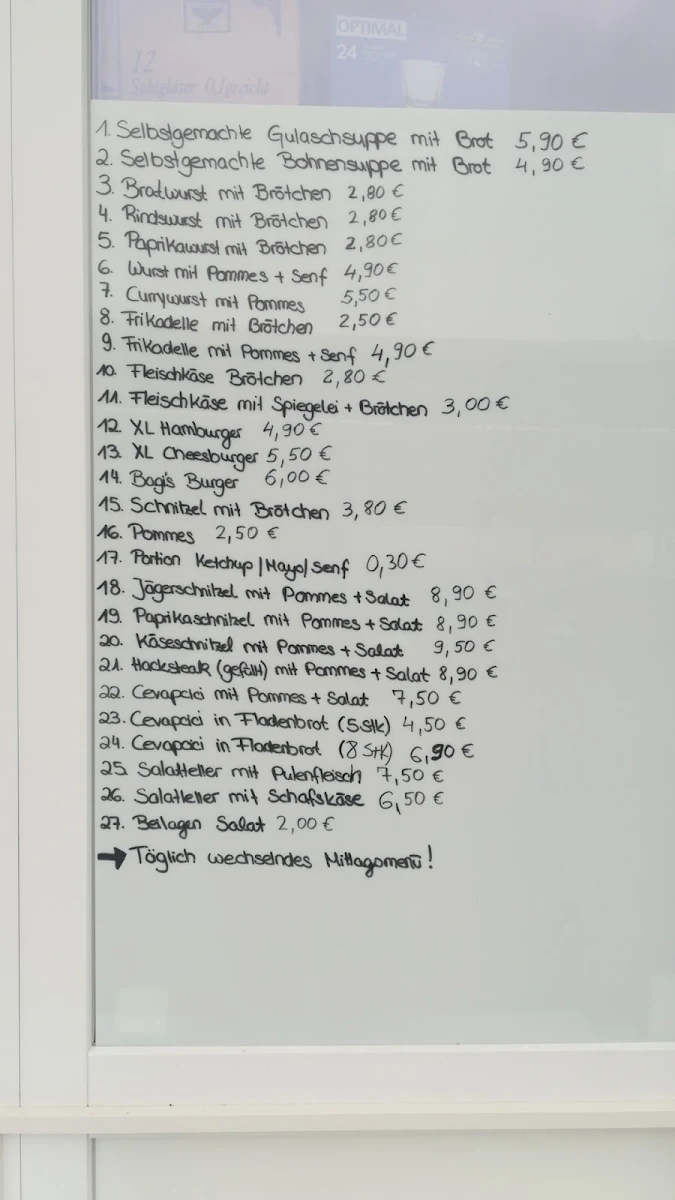 OPTIMAL
12
24
Sektgläser 0,1 geeicht
1. Selbstgemachte Gulaschsuppe mit Brot 5,90 €
2. Selbstgemachte Bohnensuppe mit Brot 4,90 €
3. Bratwurst mit Brötchen 2,80 €
4. Rindswurst mit Brötchen 2,80 €
5. Paprikawurst mit Brötchen 2,80 €
6. Wurst mit Pommes + Senf 4,90 €
7. Currywurst mit Pommes 5,50 €
8. Frikadelle mit Brötchen 2,50 €
9. Frikadelle mit Pommes + Senf 4,90 €
10. Fleischkäse Brötchen 2,80 €
11. Fleischkäse mit Spiegelei + Brötchen 3,00 €
12. XL Hamburger 4,90 €
13. XL Cheesburger 5,50 €
14. Bagi's Burger 6,00 €
15. Schnitzel mit Brötchen 3,80 €
16. Pommes 2,50 €
17. Portion Ketchup | Mayo | Senf 0,30 €
18. Jägerschnitzel mit Pommes + Salat 8,90 €
19. Paprikaschnitzel mit Pommes + Salat 8,90 €
20. Käseschnitzel mit Pommes + Salat 9,50 €
21. Hacksteak (gefüllt) mit Pommes + Salat 8,90 €
22. Cevapcici mit Pommes + Salat 7,50 €
23. Cevapcici in Fladenbrot (5 Stk) 4,50 €
24. Cevapcici in Fladenbrot (8 Stk) 6,90 €
25. Salatteller mit Putenfleisch 7,50 €
26. Salatteller mit Schafskäse 6,50 €
27. Beilagen Salat 2,00 €
→ Täglich wechselndes Mittagsmenü!